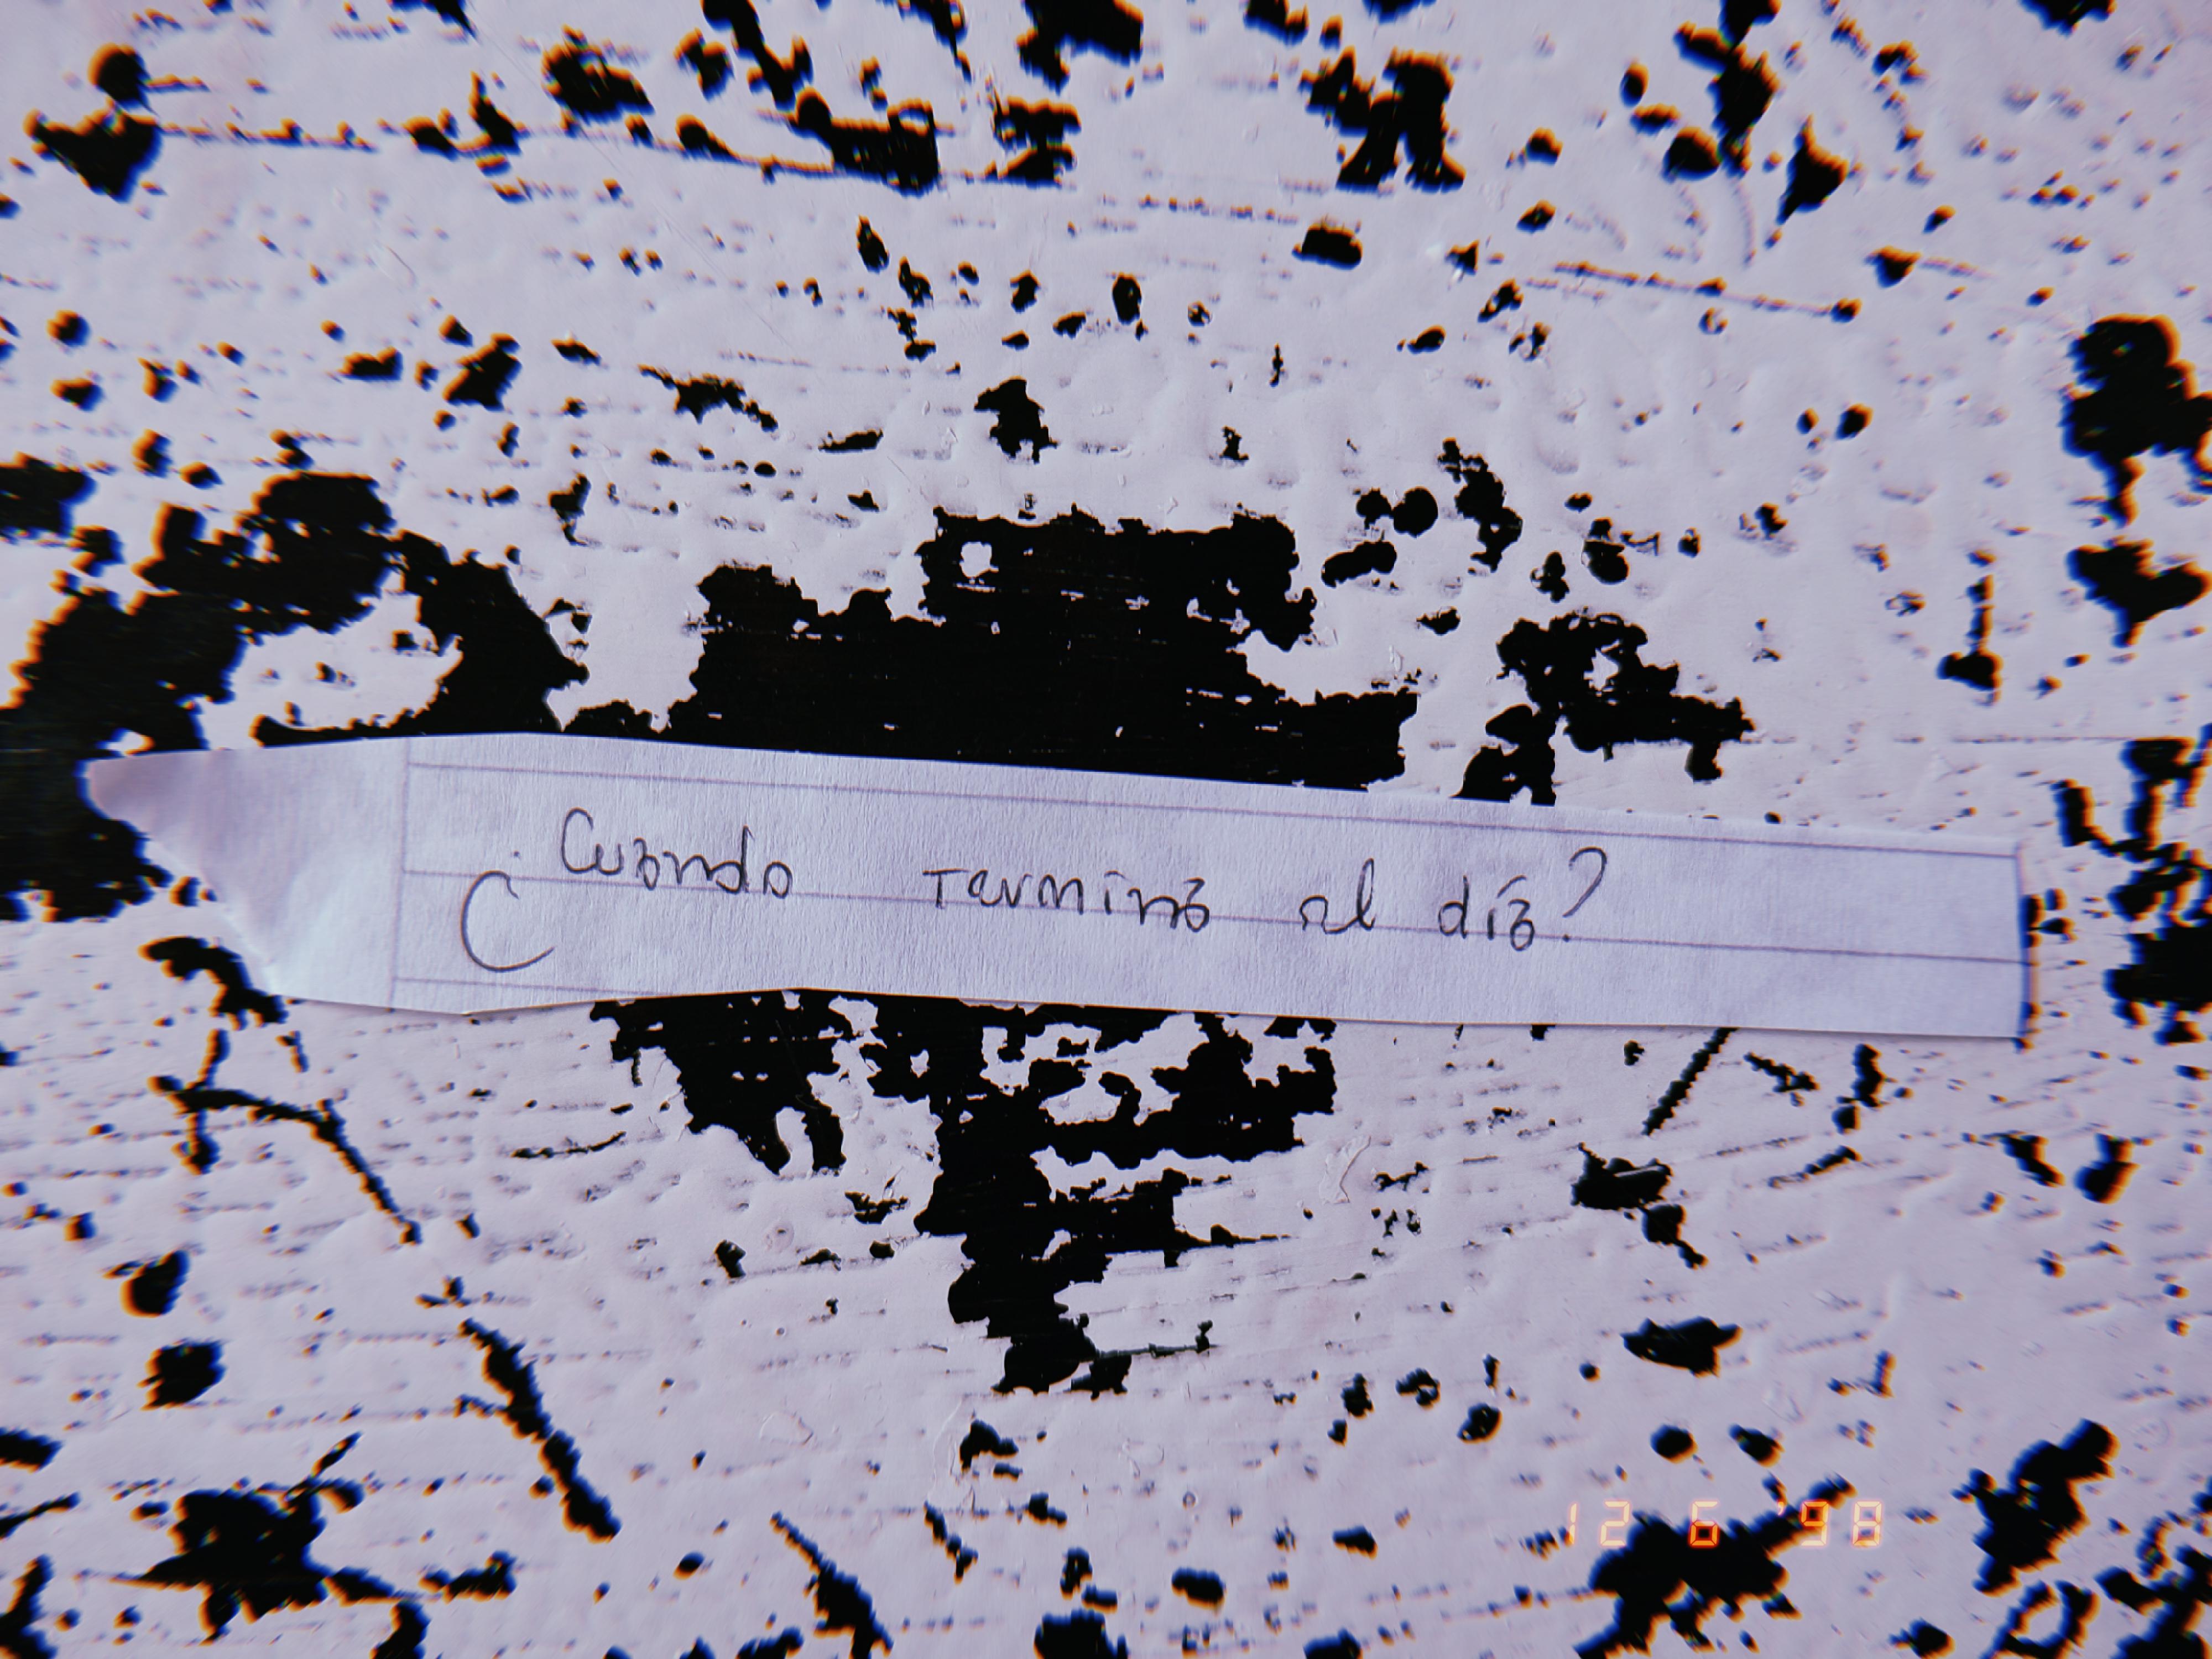 ¿Cuando termina el día?
12 6 '98